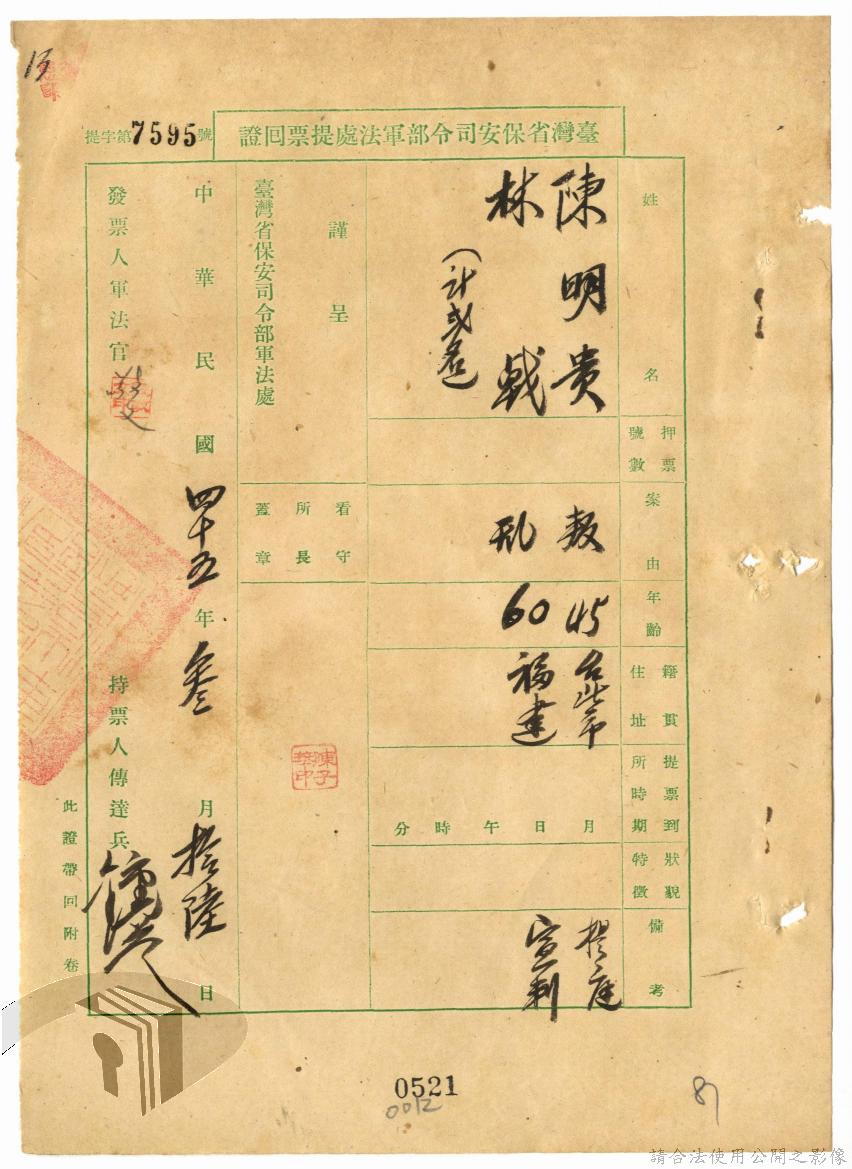 15
臺灣省保安司令部軍法處提票回證
提字第7595號
姓名
陳明貴
林戟
(計弍名)
押票號數
案由
叛乱
年齡
45
60
籍貫住址
台北市
福建
提票到所時期
月日午時分
狀貌特徵
備考
提庭
宣判
謹呈
臺灣省保安司令部軍法處
看守所長蓋章
陳子華印
中華民國四十五年叁月拾陸日
發票人軍法官
持票人傳達兵
此證帶回附卷
0521
0012
87
請合法使用公開之影像